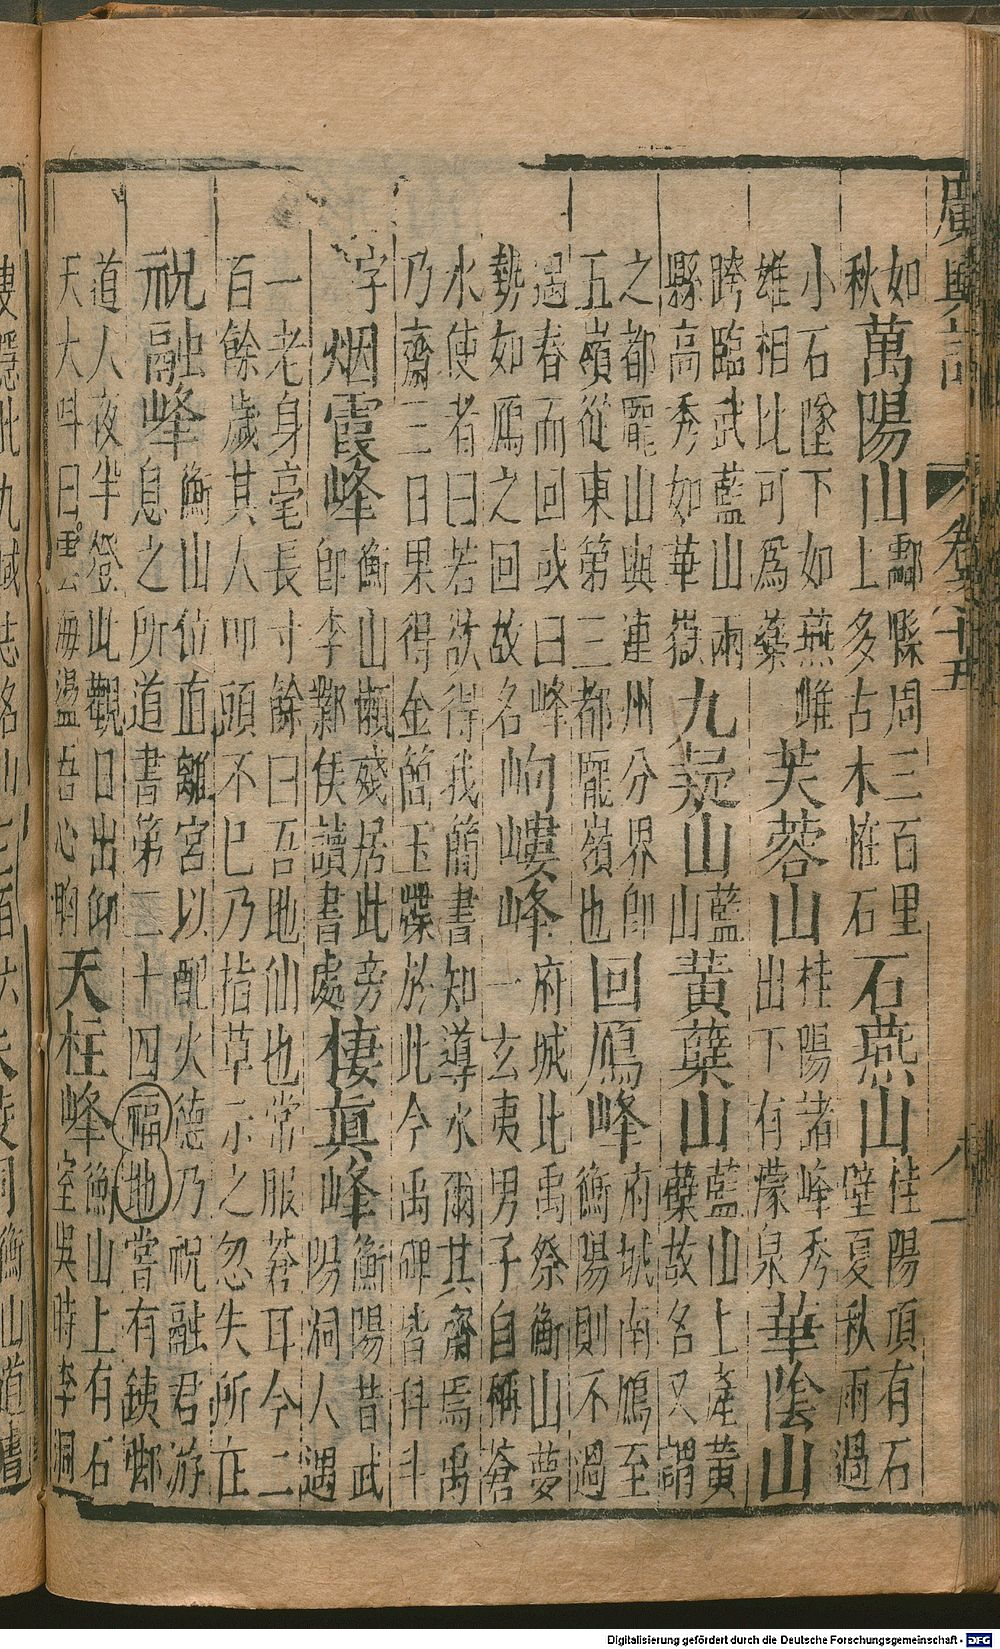 廣輿記 卷之十五 八
如
秋
萬陽山
酃縣周三百里
上多古木怪石
石燕山
桂陽項有石
壁夏秋雨過
小石墜下如燕雌
雄相比可爲藥
芙蓉山
桂陽諸峰秀
出下有濛泉
華陰山
跨臨武藍山兩
縣高秀如華嶽
九疑山
藍
山
黃蘗山
藍山上產黃
蘗故名又謂
之都龐山與連州分界卽
五嶺從東第三都龐嶺也
回鴈峰
府城南鴈至
衡陽則不過
遇春而回或曰峰
勢如鴈之回故名
岣嶁峰
府城北禹祭衡山夢
一玄夷男子自稱蒼
水使者曰若欲得我簡書知導水爾其齋焉禹
乃齋三日果得金簡玉牒於此今禹碑皆科斗
字
烟霞峰
衡山懶殘居此旁
卽李鄴侯讀書處
棲眞峰
衡陽昔武
陽洞人遇
一老身毫長寸餘曰吾地仙也常服蒼耳今二
百餘歲其人叩頭不已乃指草示之忽失所在
祝融峰
衡山位直離宮以配火德乃祝融君游
息之所道書第二十四福地嘗有銕脚
道人夜半登此觀日出仰
天大呌曰雲海盪吾心胸
天柱峰
衡山上有石
室吳時李洞
Digitalisierung gefördert durch die Deutsche Forschungsgemeinschaft - DFG